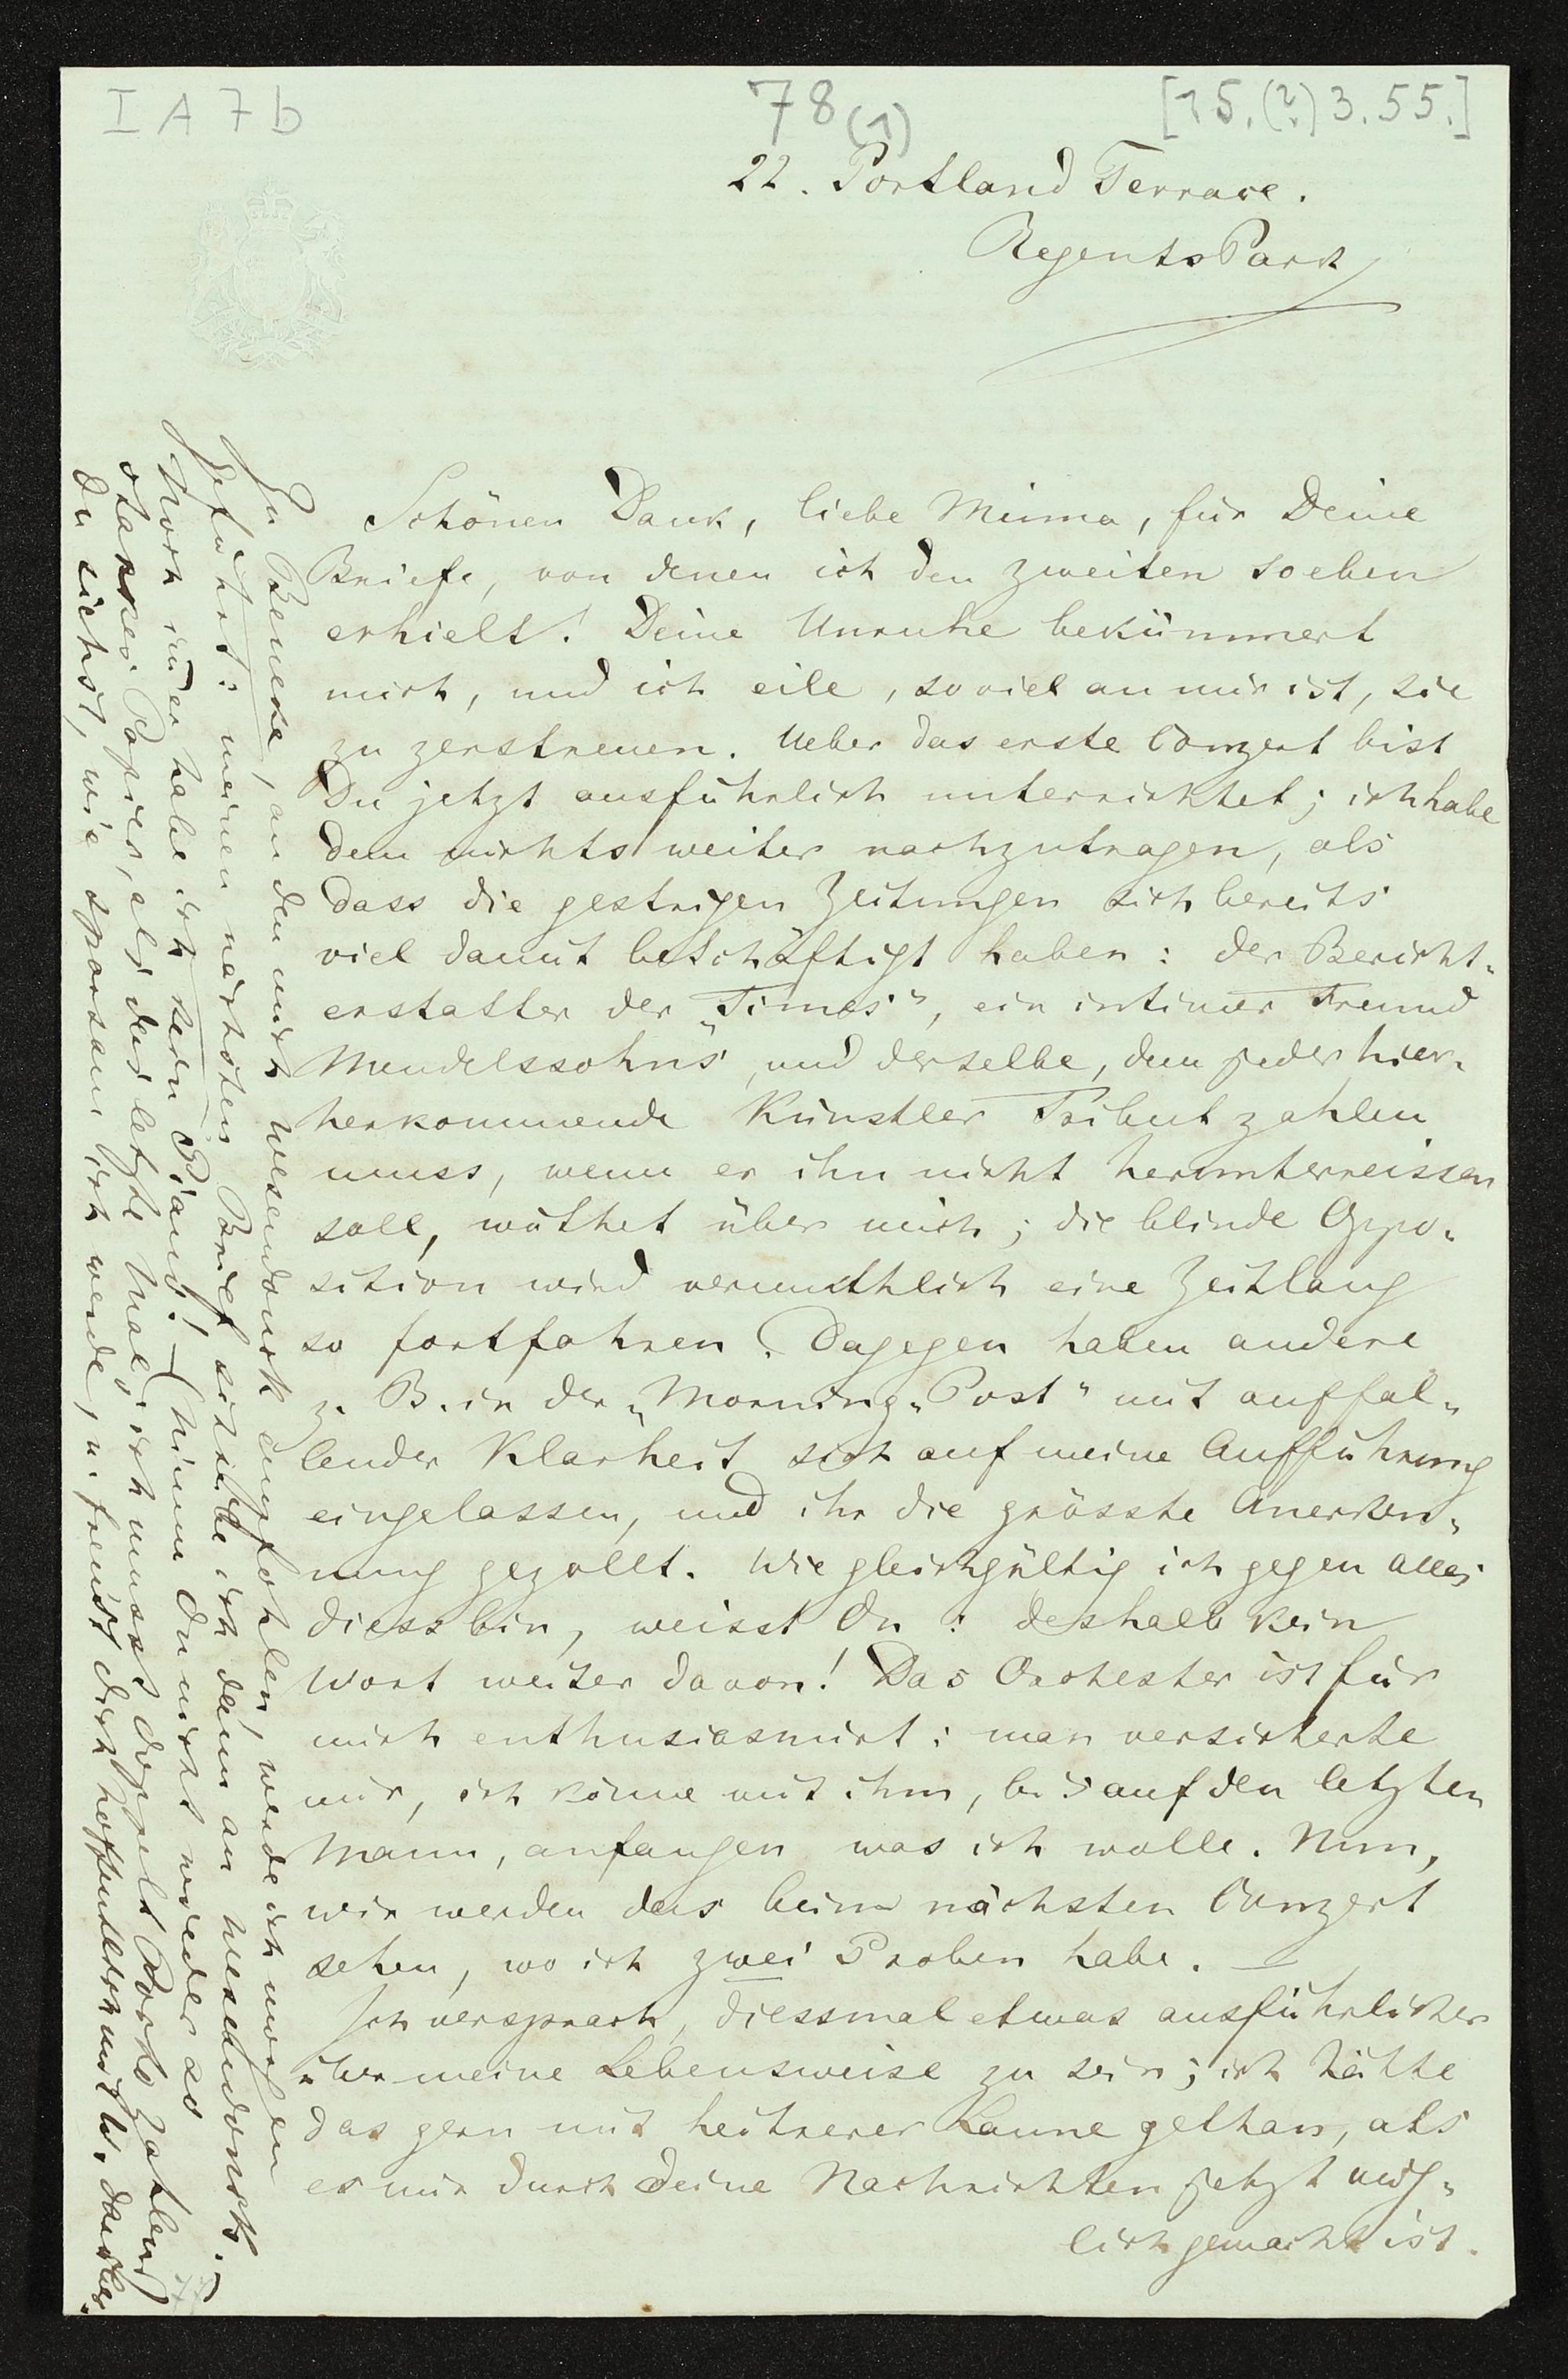 I A 7 b
78 (1)
[15.(?) 3.55.]
22. Portland Terrace.
Regents Park
Schönen Dank, liebe Minna, für Deine
Briefe, von denen ich den zweiten soeben
erhielt! Deine Unruhe bekümmert
mich, und ich eile, soviel an mir ist, sie
zu zerstreuen. Ueber das erste Conzert bist
Du jetzt ausführlich unterrichtet; ich habe
dem nichts weiter nachzutragen, als
dass die gestrigen Zeitungen sich bereits
viel damit beschäftigt haben: der Bericht-
erstatter der „Times", ein intimer Freund
Mendelssohn's, und derselbe, dem jeder hier-
herkommende Künstler Tribut zahlen
muss, wenn er ihn nicht herunterreissen
soll, wüthet über mich; die blinde Oppo-
sition wird vermuthlich eine Zeitlang
so fortfahren. Dagegen haben andere
z. B. in der „Morning-Post" mit auffal-
lender Klarheit sich auf meine Aufführung
eingelassen, und ihr die grösste Anerken-
nung gezollt. Wie gleichgültig ich gegen alles
diess bin, weisst Du: deshalb kein
Wort weiter davon! Das Orchester ist für
mich enthusiasmirt: man versicherte
mir, ich könne mit ihm, bis auf den letzten
Mann, anfangen was ich wolle. Nun,
wir werden das beim nächsten Conzert
sehen, wo ich zwei Proben habe. —
Ich versprach, diessmal etwas ausführlicher
über meine Lebensweise zu sein; ich hätte
das gern mit heitrerer Laune gethan, als
es mir durch Deine Nachrichten jetzt mög-
lich gemacht ist.
Zu Benecke, an den mich Wesendonck empfohlen, werde ich morgen
geführt: meinen nächsten Brief schicke ich dann an Wesendonck.
Noch immer habe ich kein Piano! — (Nimm Du nicht wieder so
starkes Papier, als das letzte Mal; ich musst doppelt Porto zahlen!
Du siehst, wie sparsam ich werde, u. freust dich hoffentlich mit W. darüber.